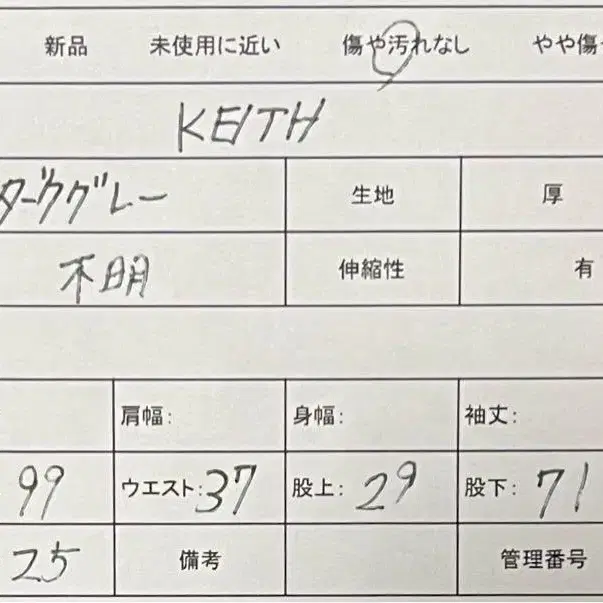 新品 未使用に近い 傷や汚れなし やや傷
KEITH
ダークグレー 生地 厚
不明 伸縮性 有
肩幅: 身幅: 袖丈:
99 ウエスト:37 股上:29 股下:71
25 備考 管理番号